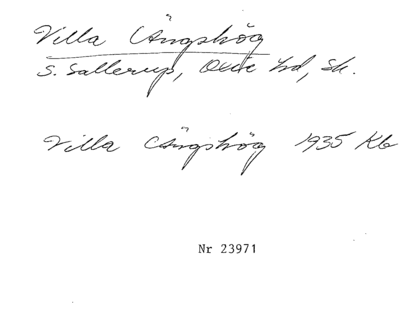 Villa Ängshög
S. Sallerup, Oxie hd, Sk.
Villa Ängshög 1935 Kb
Nr 23971